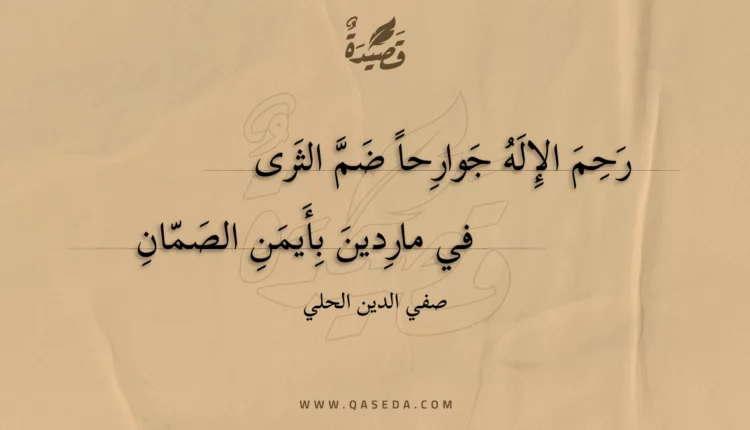 قَصِيْدَةٌ
رَحِمَ الإِلَهُ جَوارِحاً ضَمَّ الثَرى
في مارِدينَ بِأَيمَنِ الصَمّانِ
صفي الدين الحلي
WWW.QASEDA.COM